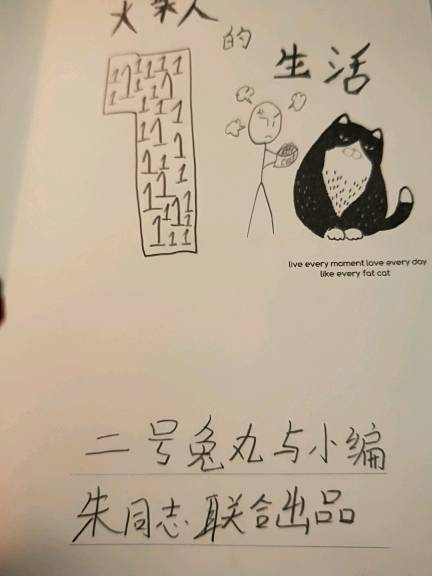 火柴人
的
生活
1
live every moment love every day
like every fat cat
二号兔丸与小编
朱同志联合出品